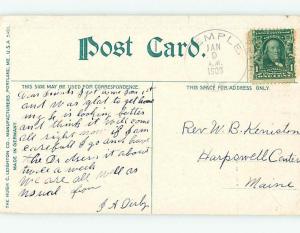 Post Card.
TEMPLE
JAN
9
A.M.
1909
THIS SPACE MAY BE USED FOR CORRESPONDENCE.
THIS SPACE FOR ADDRESS ONLY.
THE HUGH C. LEIGHTON CO., MANUFACTURERS, PORTLAND, ME. U.S.A.
MADE IN GERMANY
Dear Friends I got home
and was glad to get home
my is looking better
and think he will come
all right now if I am
careful I go and have
the Dr dress it about
twice a week
We are all well as
usual from
J A Derby
Rev W. B. Keniston
Harpswell Center
Maine